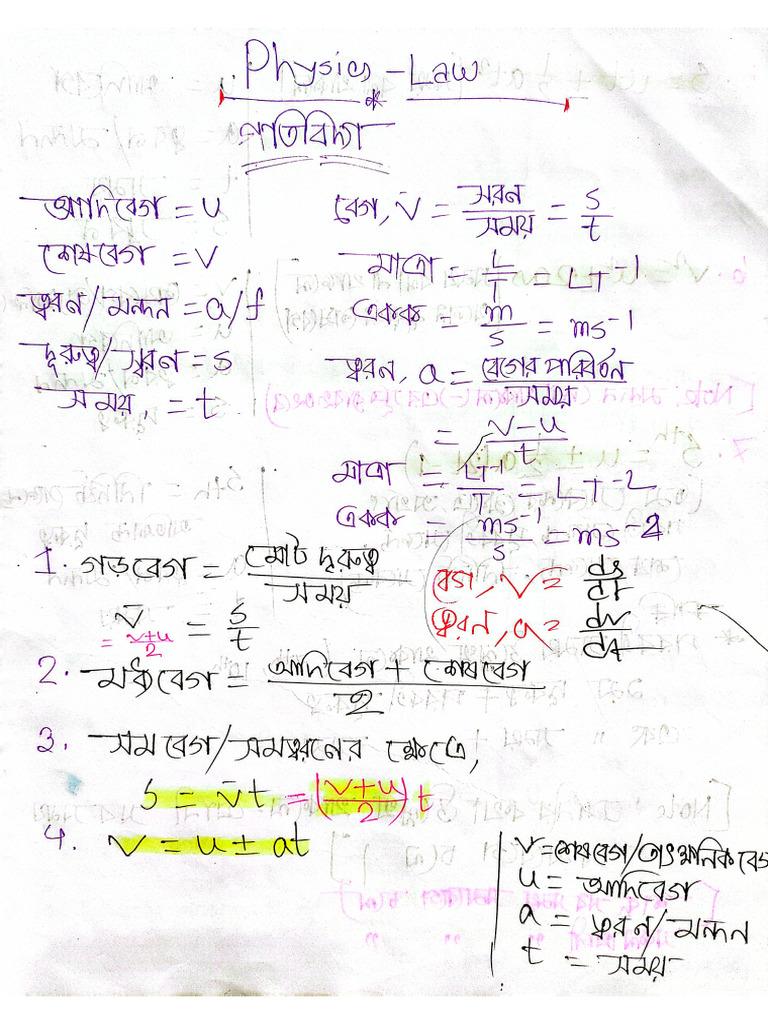 Physics - Law
*
গতিবিদ্যা
আদিবেগ = u
শেষবেগ = v
ত্বরন/মন্দন = a/f
দূরুত্ব/স্বরন = s
সময়, = t
বেগ, v̄ = সরন/সময় = s/t
মাত্রা = L/T = LT⁻¹
একক = m/s = ms⁻¹
ত্বরন, a = বেগের পরিবর্তন/সময়
= v-u/t
মাত্রা = LT⁻¹/T = LT⁻²
একক = ms⁻¹/s = ms⁻²
1. গড়বেগ = মোট দূরুত্ব/সময়
v̄ = s/t
= v+u/2
বেগ, v = ds/dt
ত্বরন, a = dv/dt
2. মধ্যবেগ = আদিবেগ + শেষবেগ/2
3. সমবেগ/সমত্বরনের ক্ষেত্রে,
s = v̄t = (v+u/2)t
4. v = u ± at
v = শেষবেগ/তাৎক্ষনিক বেগ
u = আদিবেগ
a = ত্বরন/মন্দন
t = সময়